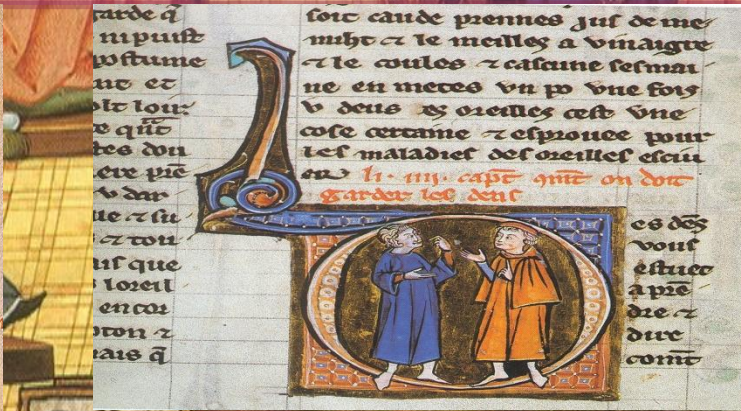 garde q̃
ni puist
postume
aut et
olt loir
te qũt
tes dou
ere prẽ
v dar
ue ⁊ su
⁊ tou
ais que
loreil
encor
oton ⁊
rais q̃
soit caude prennes jus de me
⁊ le meilles a vinaigre
⁊ le coules ⁊ cascune semai
ne en metes vn po vne fois
v deus es oreilles cest vne
cose certaine ⁊ esprouee pour
les maladies des oreilles esciu
er li .iiii. capt 9mt on doit
garder les dens
es dẽs
vous
estuet
aprẽ
dre ⁊
dire
comt